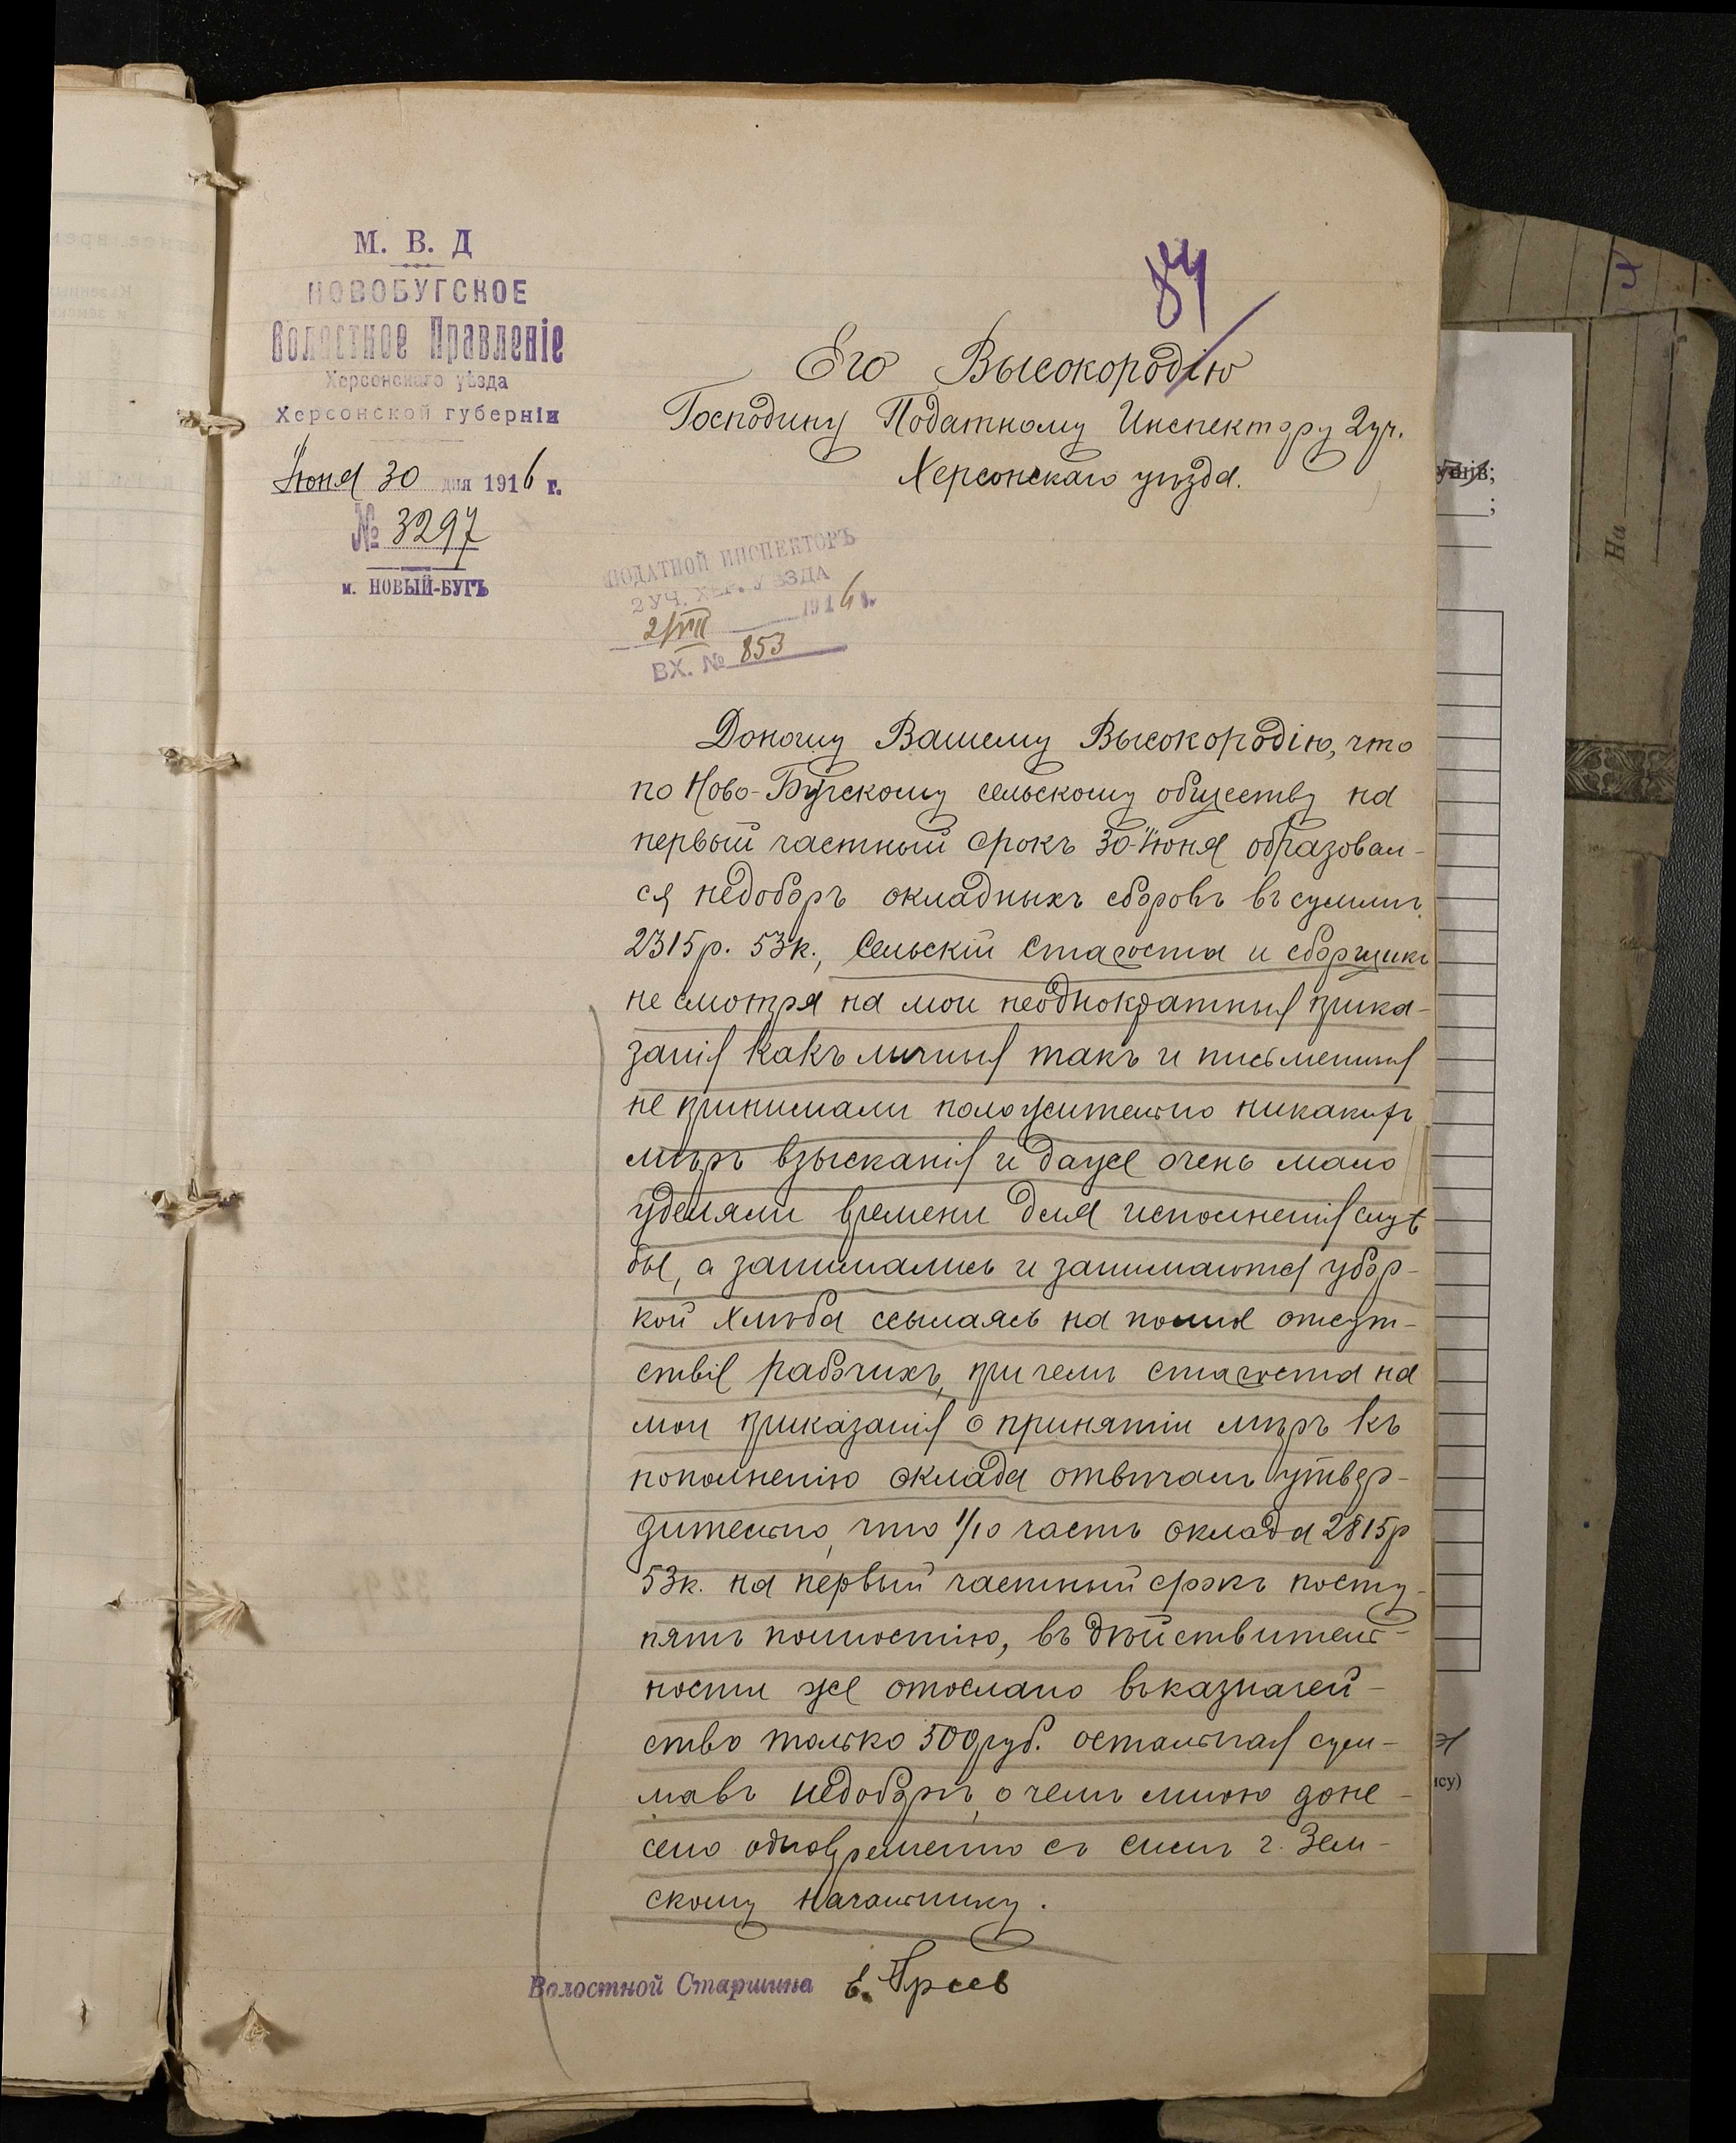 М. В. Д
НОВОБУГСКОЕ
Волостное Правленіе
Херсонскаго уѣзда
Херсонской губерніи
Іюня 30 дня 1916 г.
№ 3297
м. НОВЫЙ-БУГЪ
Его Высокородію
Господину Податному Инспектору 2 уч.
Херсонскаго уѣзда.
ПОДАТНОЙ ИНСПЕКТОРЪ
2 УЧ. ХЕР. УѢЗДА
2/VII 1916 г.
ВХ. № 853
Доношу Вашему Высокородію, что
по Ново-Бугскому сельскому обществу на
первый частный срокъ 30-Іюня образовал-
ся недоборъ окладныхъ сборовъ въ суммѣ
2315 р. 53 к., Сельскій Староста и сборщики
не смотря на мои неоднократныя прика-
занія какъ личныя такъ и письменныя
не принимали положительно никакихъ
мѣръ взысканія и даже очень мало
удѣляли времени для исполненія служ
бы, а занимались и занимаются убор-
кой хлѣба ссылаясь на полное отсут-
ствіе рабочихъ, при чемъ староста на
мои приказанія о принятіи мѣръ къ
пополненію оклада отвѣчалъ утвер-
дительно, что 1/10 часть оклада 2815 р
53 к. на первый частный срокъ посту-
пятъ полностію, въ дѣйствитель-
ности же отослано въ казначей-
ство только 500 руб. остальная сум-
ма въ недоборѣ, о чемъ мною доне-
сено одновременно съ симъ г. Зем-
скому Начальнику.
Волостной Старшина Е.
На